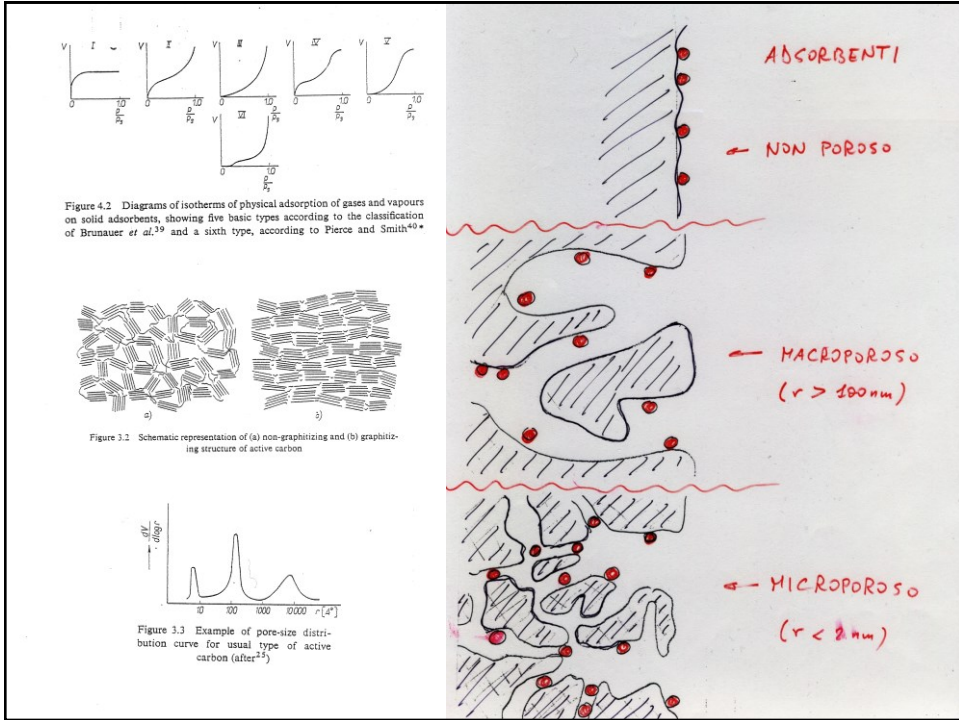 V I
0 1.0
p/ps
V II
0 1.0
p/ps
V III
0 1.0
p/ps
V IV
0 1.0
p/ps
V V
0 1.0
p/ps
V VI
0 1.0
p/ps
Figure 4.2 Diagrams of isotherms of physical adsorption of gases and vapours
on solid adsorbents, showing five basic types according to the classification
of Brunauer et al.39 and a sixth type, according to Pierce and Smith40*
a) b)
Figure 3.2 Schematic representation of (a) non-graphitizing and (b) graphitiz-
ing structure of active carbon
dV
dlogr
10 100 1000 10000 r[A°]
Figure 3.3 Example of pore-size distri-
bution curve for usual type of active
carbon (after25)
ADSORBENTI
NON POROSO
MACROPOROSO
(r > 100 nm)
MICROPOROSO
(r < 2 nm)